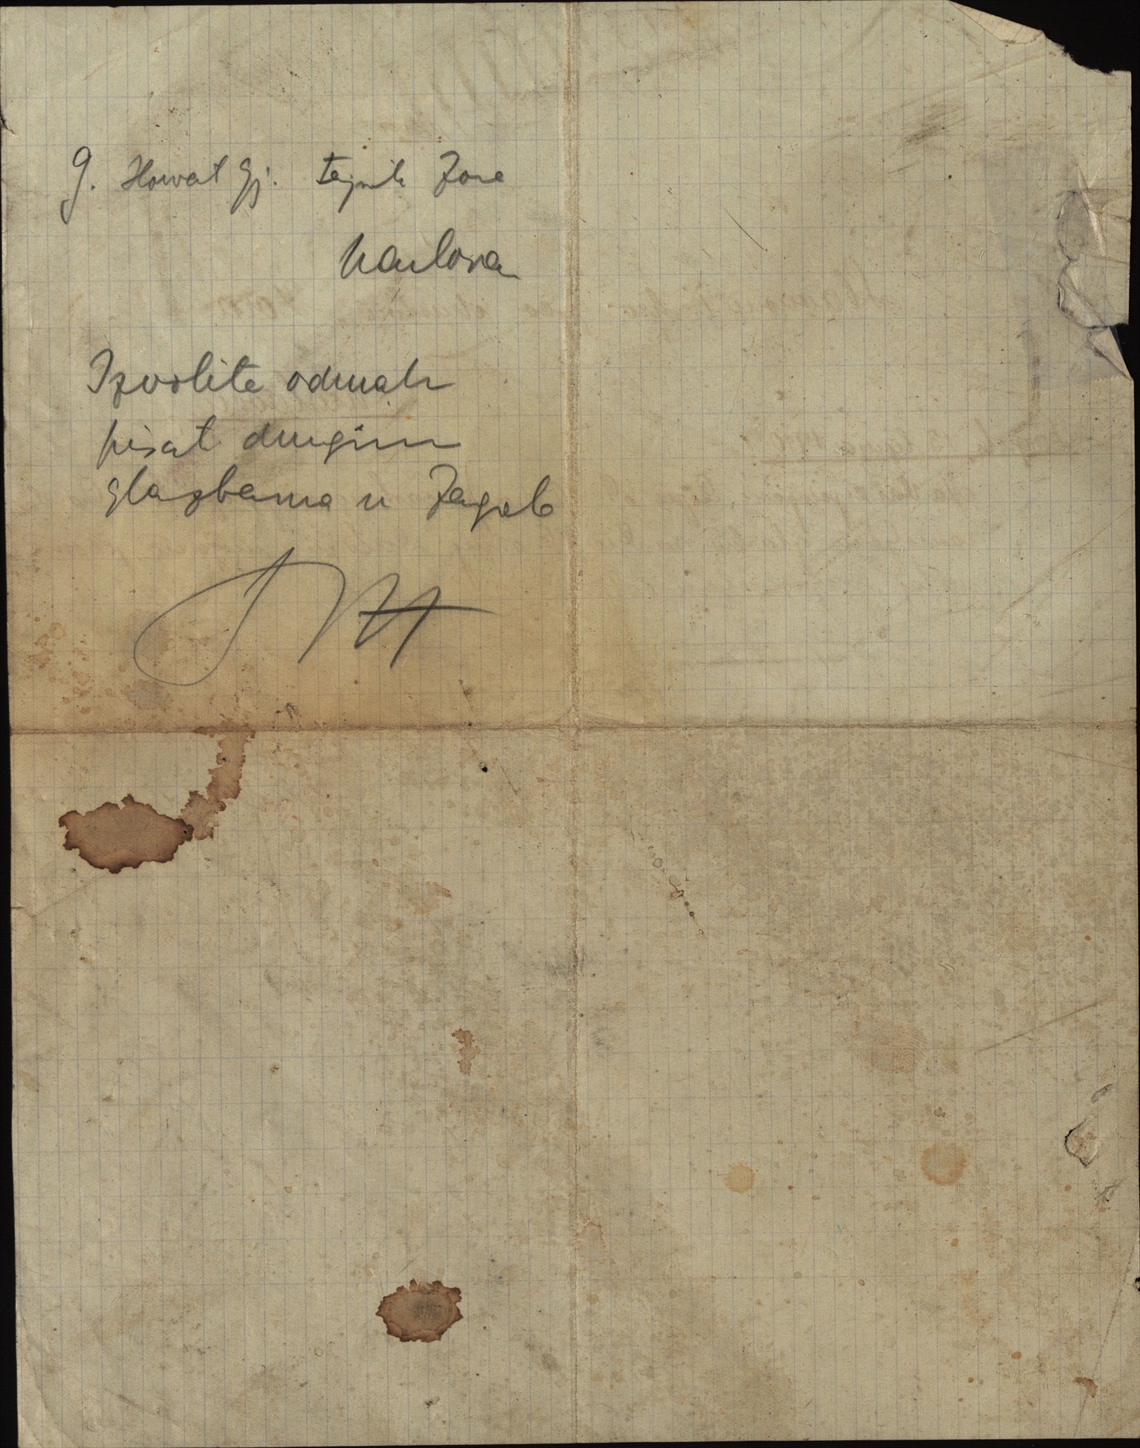 g. Horvat Gj. tajnik Zore
Karlovac
Izvolite odmah
pisat drugim
glazbama u Zagreb